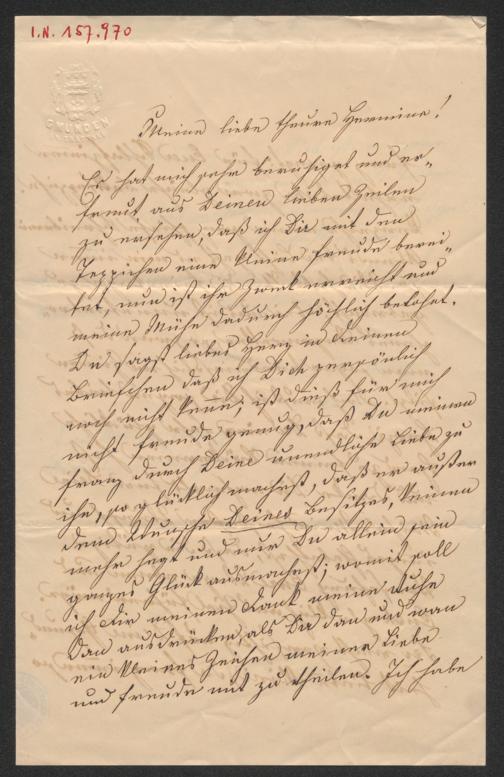 I.N. 157.970
GMUNDEN
Meine liebe theure Hermine!
Es hat mich sehr beruhiget und er-
freut aus Deinen lieben Zeilen
zu ersehen, daß ich Dir mit den
Teppichen eine kleine Freude berei-
tet, nun ist ihr Zweck erreicht und
meine Mühe dadurch höchlich belohnt.
Du sagst liebes Herz in Deinen
Briefchen daß ich Dich persönlich
noch nicht kenne; ist dieß für mich
nicht Freude genug, daß Du meinen
Franz durch Deine unendliche Liebe zu
ihm, so glücklich machest, daß er außer
dem Wunsche Deines Besitzes, keinen
mehr hegt und nur Du allein sein
ganzes Glück ausmachest; womit soll
ich Dir meinen Dank meine
dan ausdrücken, als Dir dan und wan
ein kleines Zeichen meiner Liebe
und Freude mit zu theilen. Ich habe